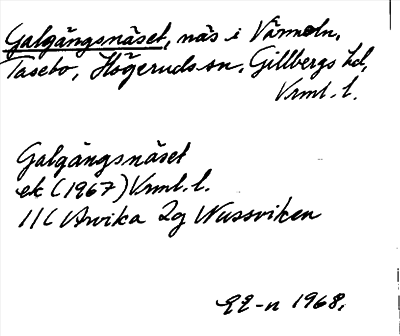 Galgängsnäset, näs i Värmeln,
Tasebo, Högeruds sn, Gillbergs hd,
Vrml. l.
Galgängsnäset
ek (1967) Vrml. l.
11C Arvika 2g Nussviken
1968.